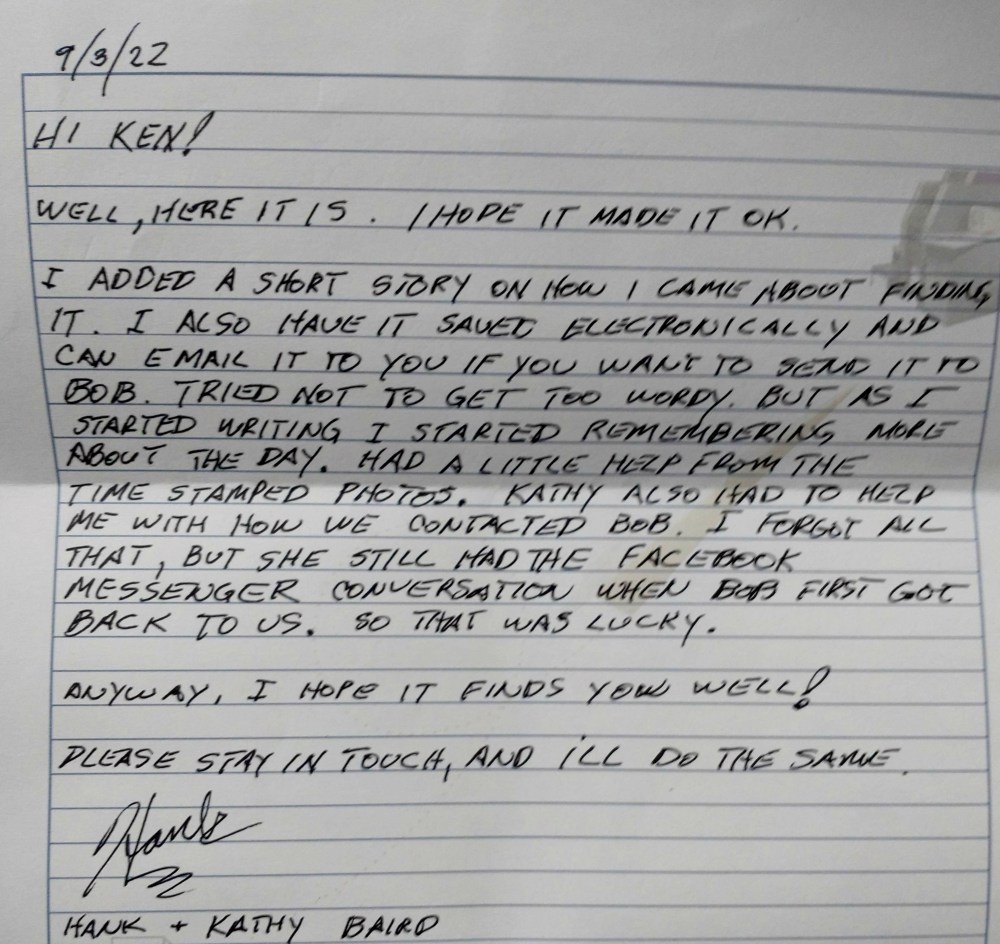 9/3/22
HI KEN!
WELL, HERE IT IS. I HOPE IT MADE IT OK.
I ADDED A SHORT STORY ON HOW I CAME ABOUT FINDING
IT. I ALSO HAVE IT SAVED ELECTRONICALLY AND
CAN EMAIL IT TO YOU IF YOU WANT TO SEND IT TO
BOB. TRIED NOT TO GET TOO WORDY. BUT AS I
STARTED WRITING I STARTED REMEMBERING MORE
ABOUT THE DAY. HAD A LITTLE HELP FROM THE
TIME STAMPED PHOTOS. KATHY ALSO HAD TO HELP
ME WITH HOW WE CONTACTED BOB. I FORGOT ALL
THAT, BUT SHE STILL HAD THE FACEBOOK
MESSENGER CONVERSATION WHEN BOB FIRST GOT
BACK TO US. SO THAT WAS LUCKY.
ANYWAY, I HOPE IT FINDS YOU WELL!
PLEASE STAY IN TOUCH, AND I'LL DO THE SAME.
Hank
HANK + KATHY BAIRD